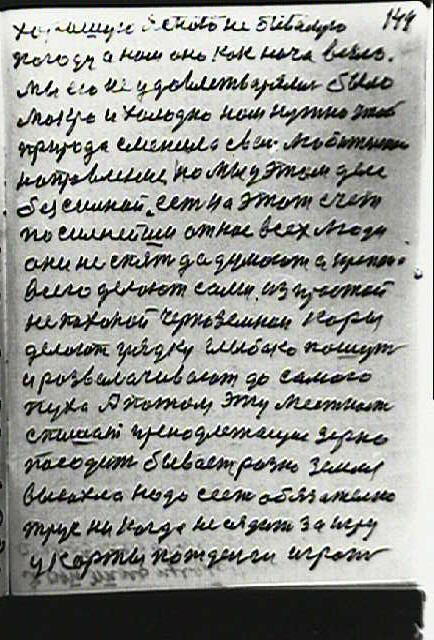 144
хорошую ясною не бывалую
погоду а нам она как нача
мы его не удовлетварялись было
мокро и холодно нам нужно чтоб
природа сменила свои
направление но мы в этом деле
безсильной есть на этот счет
посилнейши от нас всех люди
они не спят да думают а
всего делают сами из простой
не пахоной черноземной коры
делают грядку глыбако пошут
и розвалачивают до самого
пуха А потом эту местност
спишат принодлежащие зерно
посодит бывает розно земля
высохла надо сеет обязательно
трус ни когда не сядет за игру
у карты по деньги играт